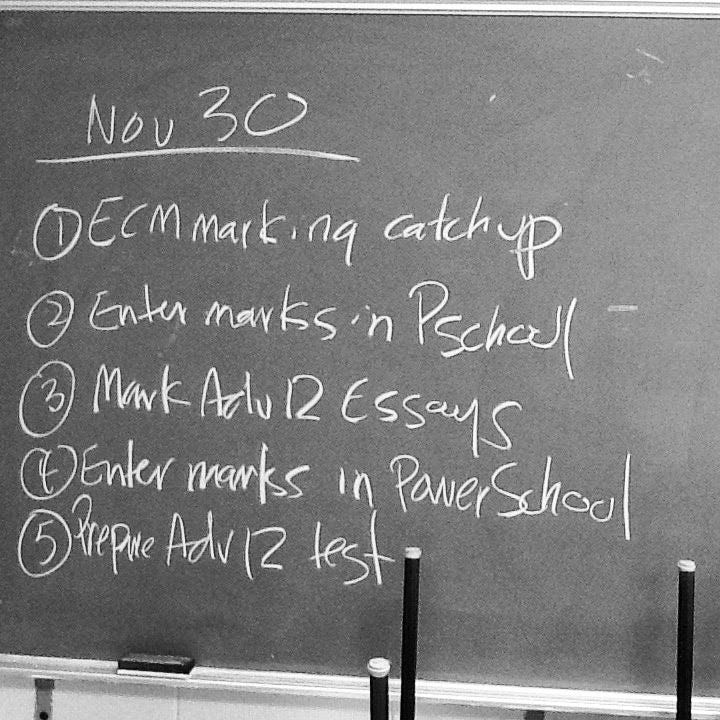 Nov 30
① ECM marking catch up
② Enter marks in Pschool
③ Mark Adv 12 Essays
④ Enter marks in PowerSchool
⑤ Prepare Adv 12 test